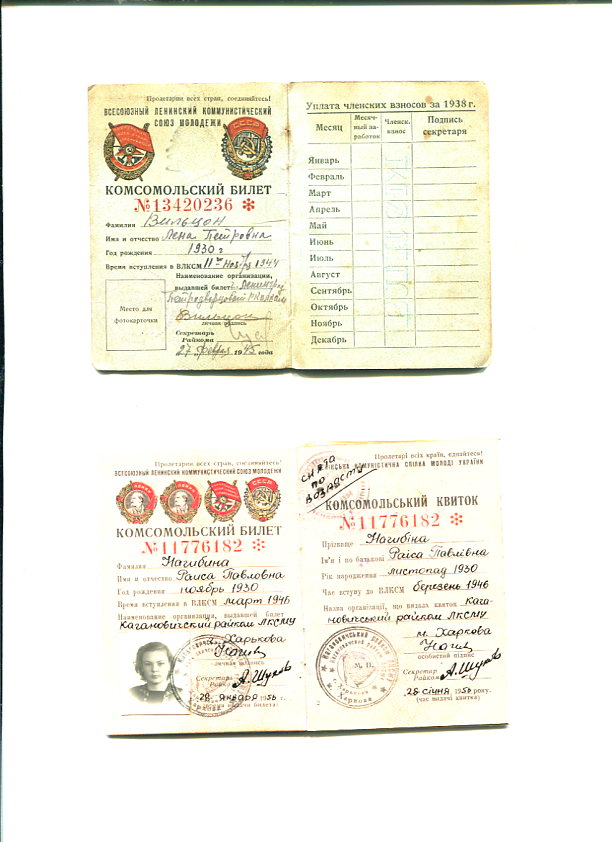 Пролетарии всех стран, соединяйтесь!
ВСЕСОЮЗНЫЙ ЛЕНИНСКИЙ КОММУНИСТИЧЕСКИЙ
СОЮЗ МОЛОДЕЖИ
КОМСОМОЛЬСКИЙ БИЛЕТ
№13420236 *
Фамилия Вильцон
Имя и отчество Лена Петровна
Год рождения 1930 г
Время вступления в ВЛКСМ 11го Ноября 1944
Наименование организации,
выдавшей билет г. Ленинград
Петродворцовый
Место для
фотокарточки
Вильцон
личная подпись
Секретарь
Райкома
27 февраля 1945 года
Уплата членских взносов за 1938 г.
Месяц
Месяч-
ный за-
работок
Членск.
взнос
Подпись
секретаря
Январь
Февраль
Март
Апрель
Май
Июнь
Июль
Август
Сентябрь
Октябрь
Ноябрь
Декабрь
Пролетарии всех стран, соединяйтесь!
ВСЕСОЮЗНЫЙ ЛЕНИНСКИЙ КОММУНИСТИЧЕСКИЙ СОЮЗ МОЛОДЕЖИ
КОМСОМОЛЬСКИЙ БИЛЕТ
№11776182 *
Фамилия Нагибина
Имя и отчество Раиса Павловна
Год рождения ноябрь 1930
Время вступления в ВЛКСМ март 1946
Наименование организации, выдавшей билет
Кагановичский райком ЛКСМУ
г. Харькова
Нагиб
личная подпись
Секретарь
Райкома А. Шухов
28 января 1956 г.
(время выдачи билета)
Пролетарі всіх країн, єднайтесь!
СНЯТА
ПО
ВОЗРАСТУ
КОМУНІСТИЧНА СПІЛКА МОЛОДІ УКРАЇНИ
КОМСОМОЛЬСЬКИЙ КВИТОК
№11776182 *
Прізвище Нагибіна
Ім'я і по батькові Раїса Павлівна
Рік народження листопад 1930
Час вступу до ВЛКСМ березень 1946
Назва організації, що видала квиток Кага-
новичський райком ЛКСМУ
м. Харкова
Нагиб
особистий підпис
Секретар
Райкому А. Шухов
28 січня 1956 року.
(час видачі квитка)